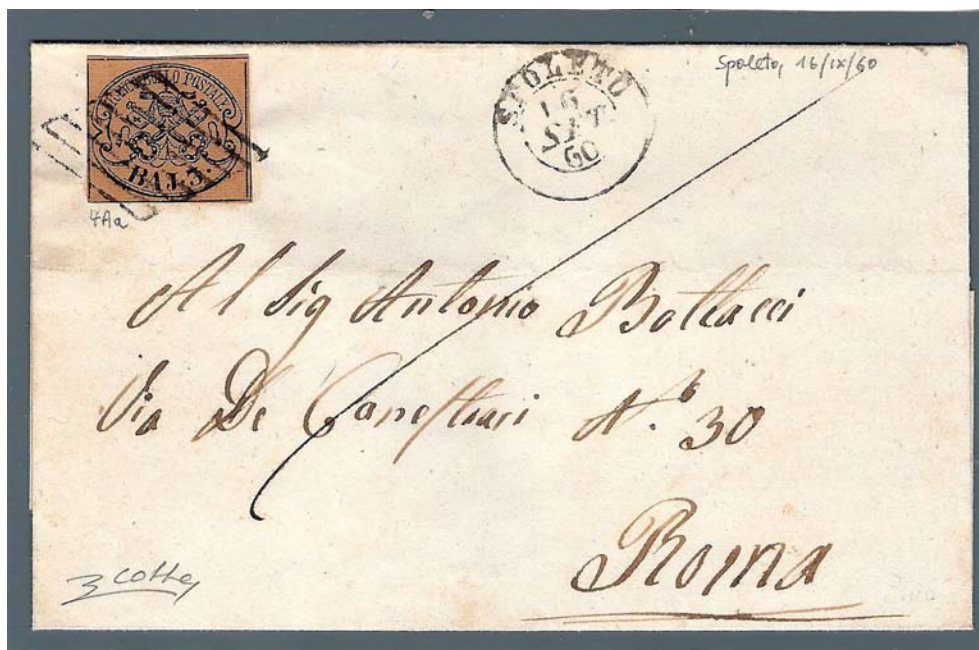 FRANCO BOLLO POSTALE
BAJ. 3.
4Aa
SPOLETO
16
SET
60
Spoleto, 16/IX/60
Al Sig Antonio Bollacci
Via De Canestrari N.° 30
Roma